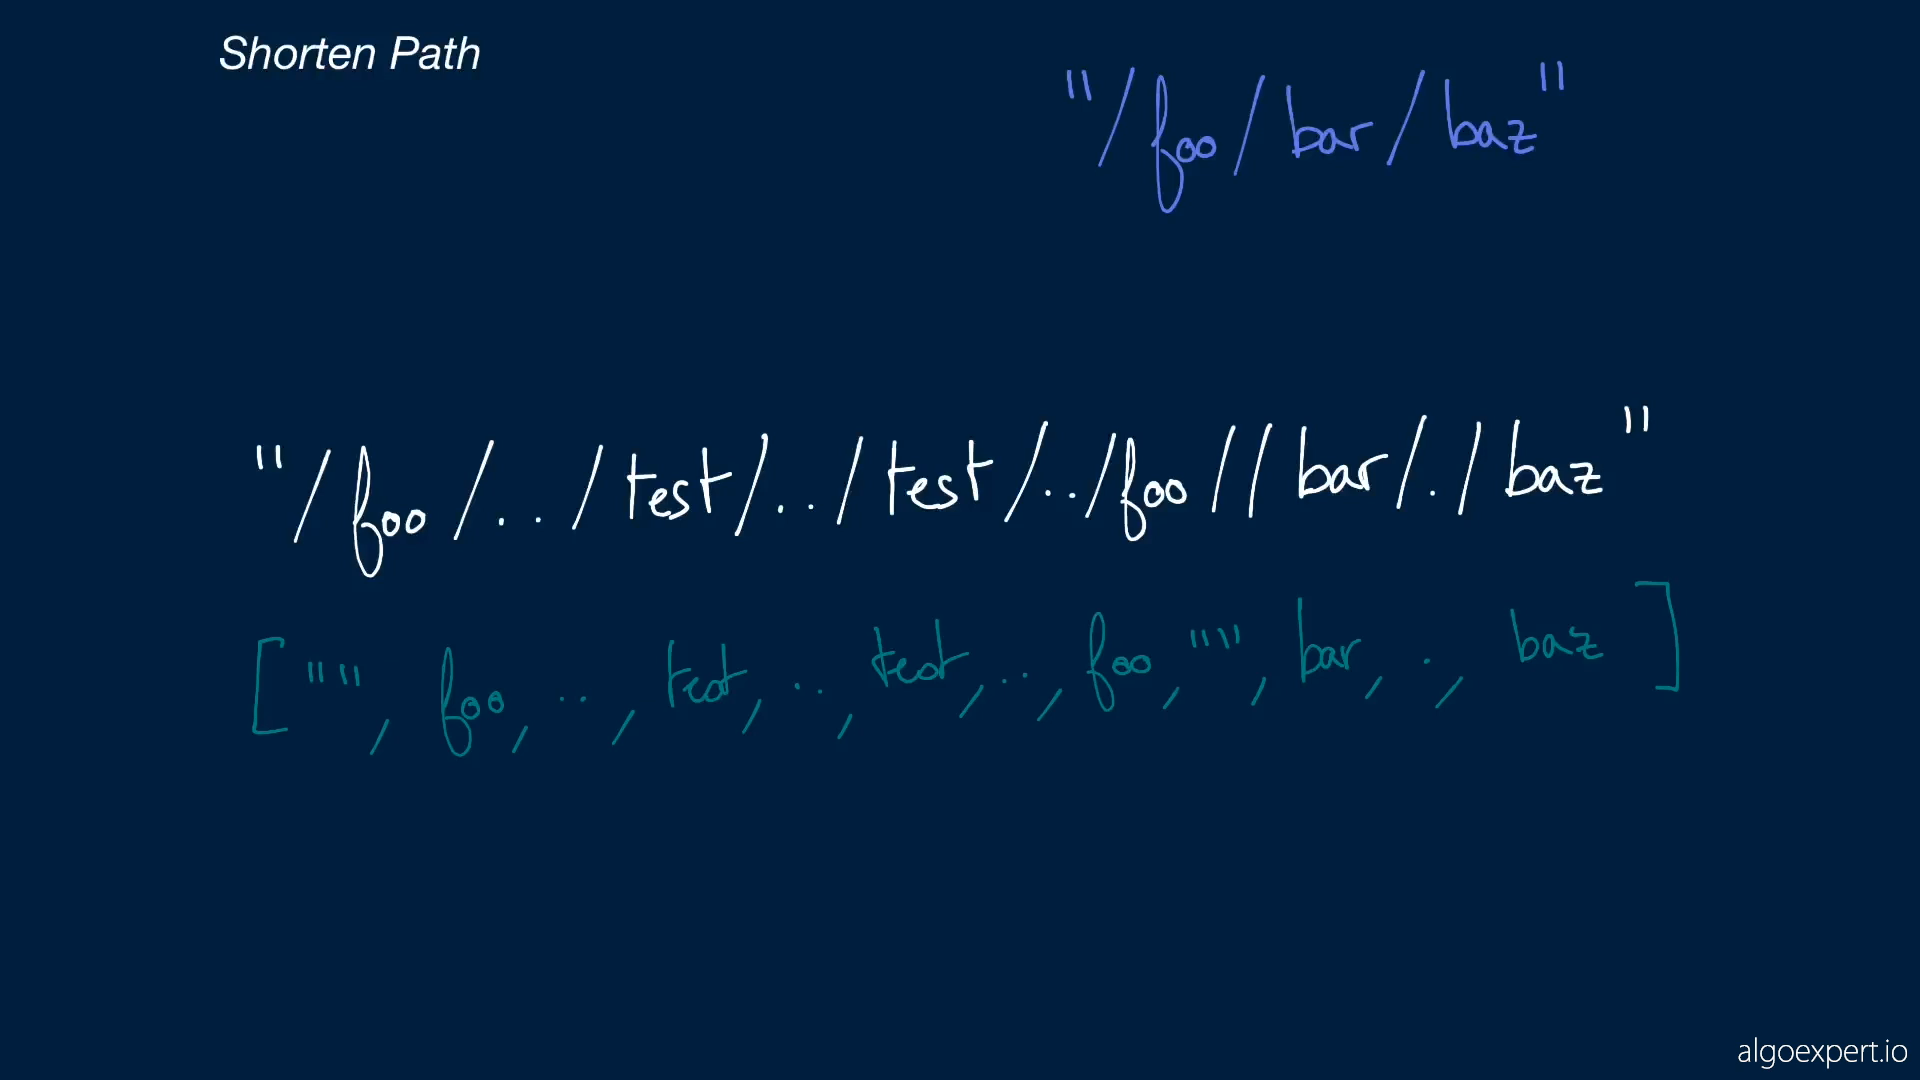 Shorten Path
"/foo/bar/baz"
"/foo/../test/../test/../foo//bar/./baz"
["", foo, .., test, .., test, .., foo, "", bar, ., baz]
algoexpert.io